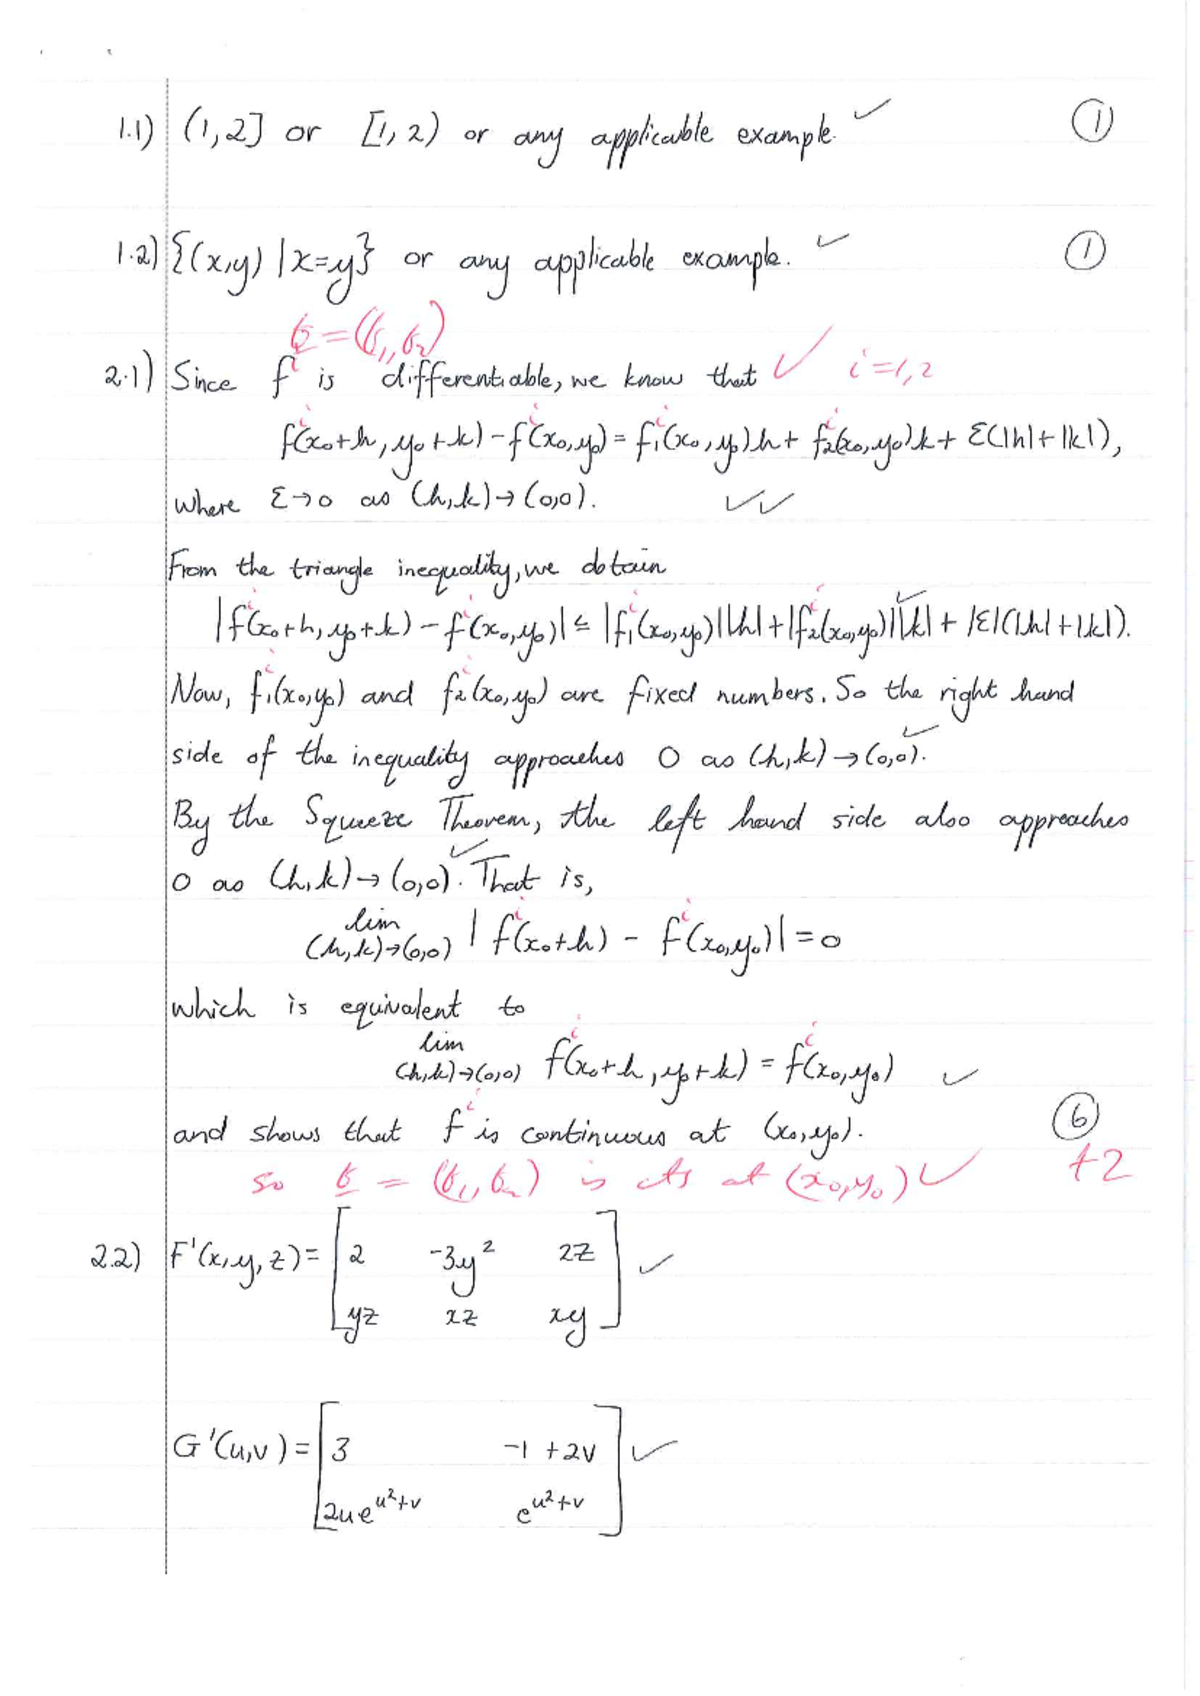 1.1) (1,2] or [1,2) or any applicable example. ✓ ①
1.2) {(x,y) | x=y} or any applicable example. ✓ ①
f = (f₁, f₂)
2.1) Since fⁱ is differentiable, we know that ✓ i=1,2
fⁱ(x₀+h, y₀+k) - fⁱ(x₀,y₀) = f₁ⁱ(x₀,y₀)h + f₂ⁱ(x₀,y₀)k + ε(|h|+|k|),
where ε→0 as (h,k)→(0,0). ✓✓
From the triangle inequality, we obtain
|fⁱ(x₀+h, y₀+k) - fⁱ(x₀,y₀)| ≤ |f₁ⁱ(x₀,y₀)||h| + |f₂ⁱ(x₀,y₀)||k| + |ε|(|h|+|k|). ✓
Now, f₁ⁱ(x₀,y₀) and f₂ⁱ(x₀,y₀) are fixed numbers. So the right hand
side of the inequality approaches 0 as (h,k)→(0,0). ✓
By the Squeeze Theorem, the left hand side also approaches
0 as (h,k)→(0,0). ✓ That is,
lim (h,k)→(0,0) | fⁱ(x₀+h) - fⁱ(x₀,y₀)| = 0
which is equivalent to
lim (h,k)→(0,0) fⁱ(x₀+h, y₀+k) = fⁱ(x₀,y₀) ✓
and shows that fⁱ is continuous at (x₀,y₀). ⑥
so f = (f₁, f₂) is cts at (x₀,y₀) ✓ +2
2.2) F'(x,y,z) = [2 -3y² 2z ✓
yz xz xy]
G'(u,v) = [3 -1+2v ✓
2ue^{u²+v} e^{u²+v}]